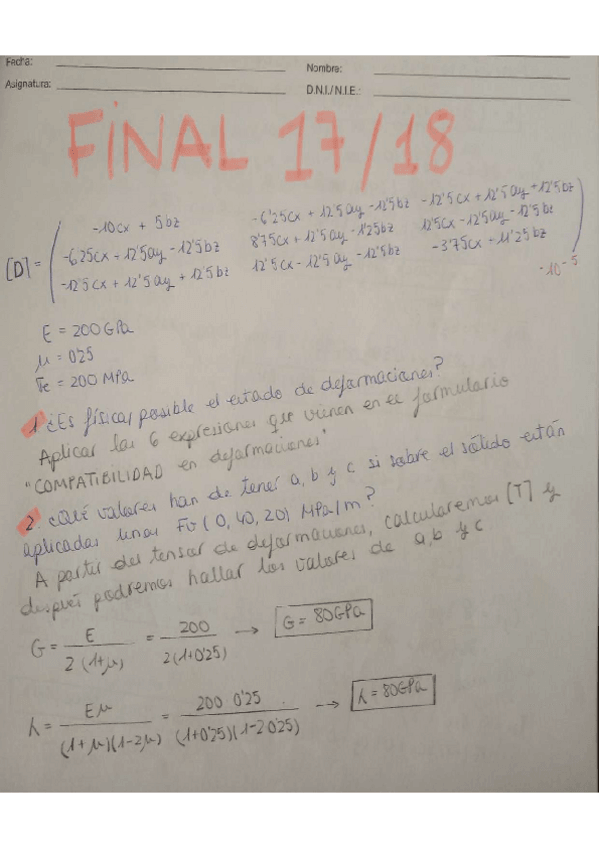 Fecha:
Nombre:
Asignatura:
D.N.I./N.I.E.:
FINAL 17/18
-10cx + 5bz   -6'25cx + 12'5ay - 12'5bz   -12'5cx + 12'5ay + 12'5bz
[D] = -6,25cx + 12'5ay - 12'5bz   8'75cx + 12'5ay - 1'25bz   12'5cx - 12'5ay - 12'5bz
-12'5cx + 12'5ay + 12'5bz   12'5cx - 12'5ay - 12'5bz   -3'75cx - 11'25bz
·10⁻⁵
E = 200 GPa
μ = 0'25
σe = 200 MPa
1. ¿Es física/ posible el estado de deformaciones?
Aplicar las 6 expresiones que vienen en el formulario
"COMPATIBILIDAD en deformaciones"
2. ¿Qué valores han de tener a, b y c si sobre el sólido están
aplicadas unas Fv (0, 40, 20) MPa/m?
A partir del tensor de deformaciones, calcularemos [T] y
después podremos hallar los valores de a, b y c
G = E / 2(1+μ) = 200 / 2(1+0'25) → G = 80GPa
λ = Eμ / (1+μ)(1-2μ) = 200·0'25 / (1+0'25)(1-2·0'25) → λ = 80GPa